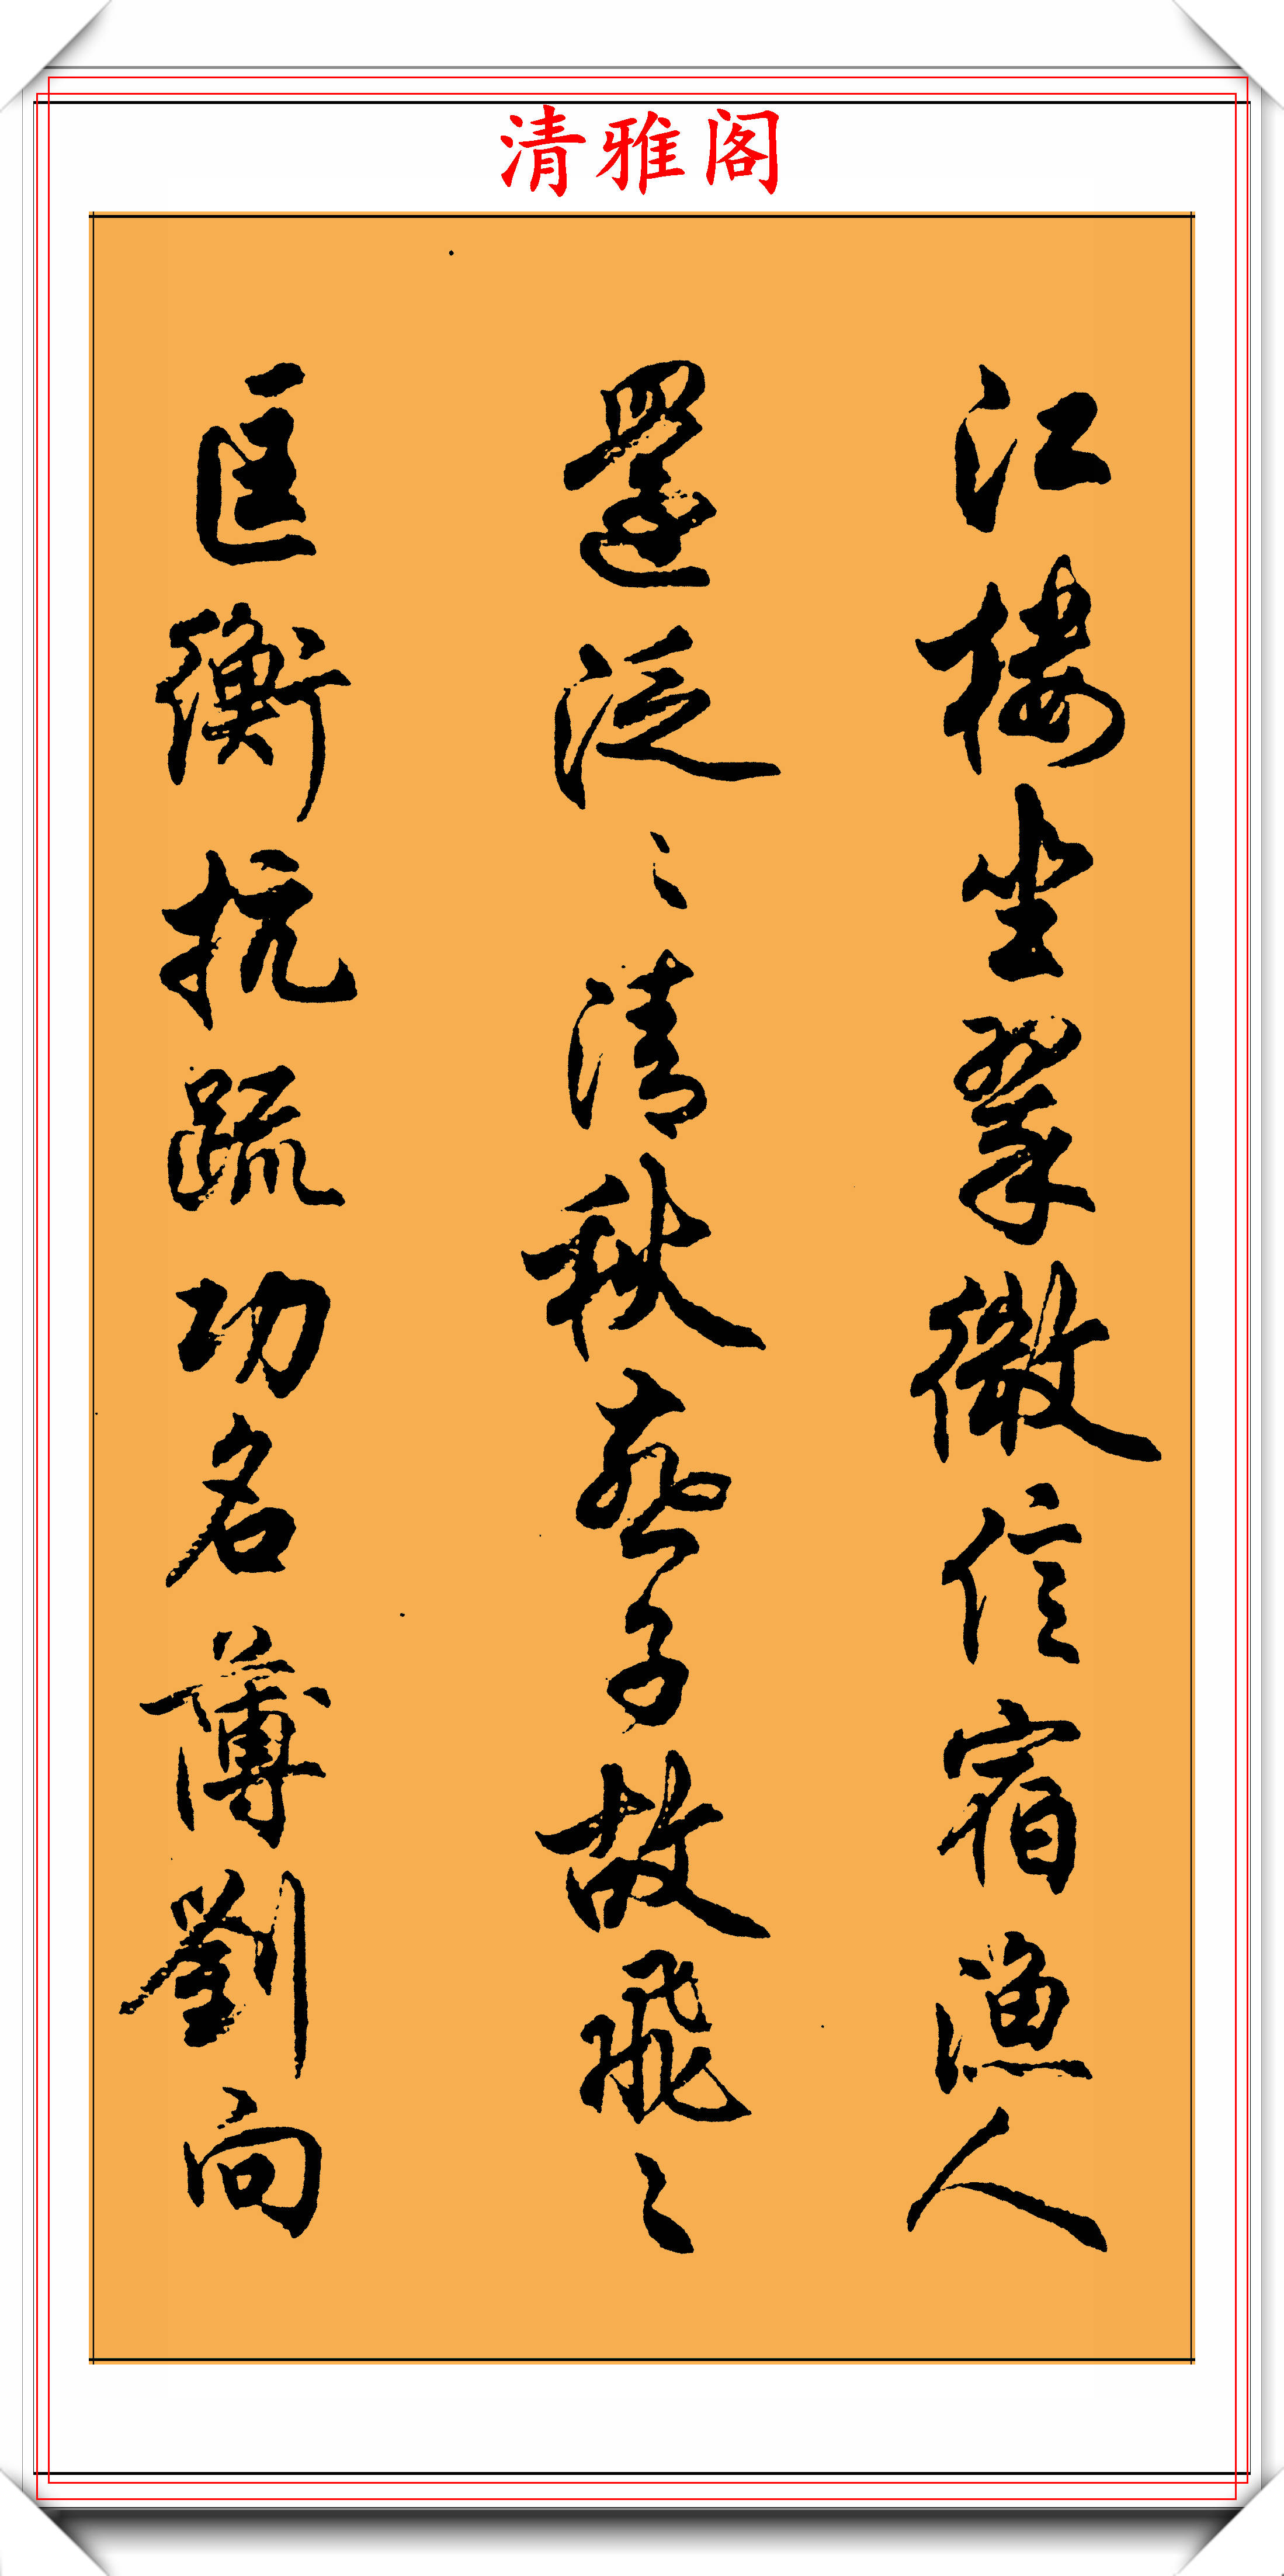 清雅阁
江楼坐翠微信宿渔人
還泛〻清秋燕子故飛〻
匡衡抗疏功名薄劉向